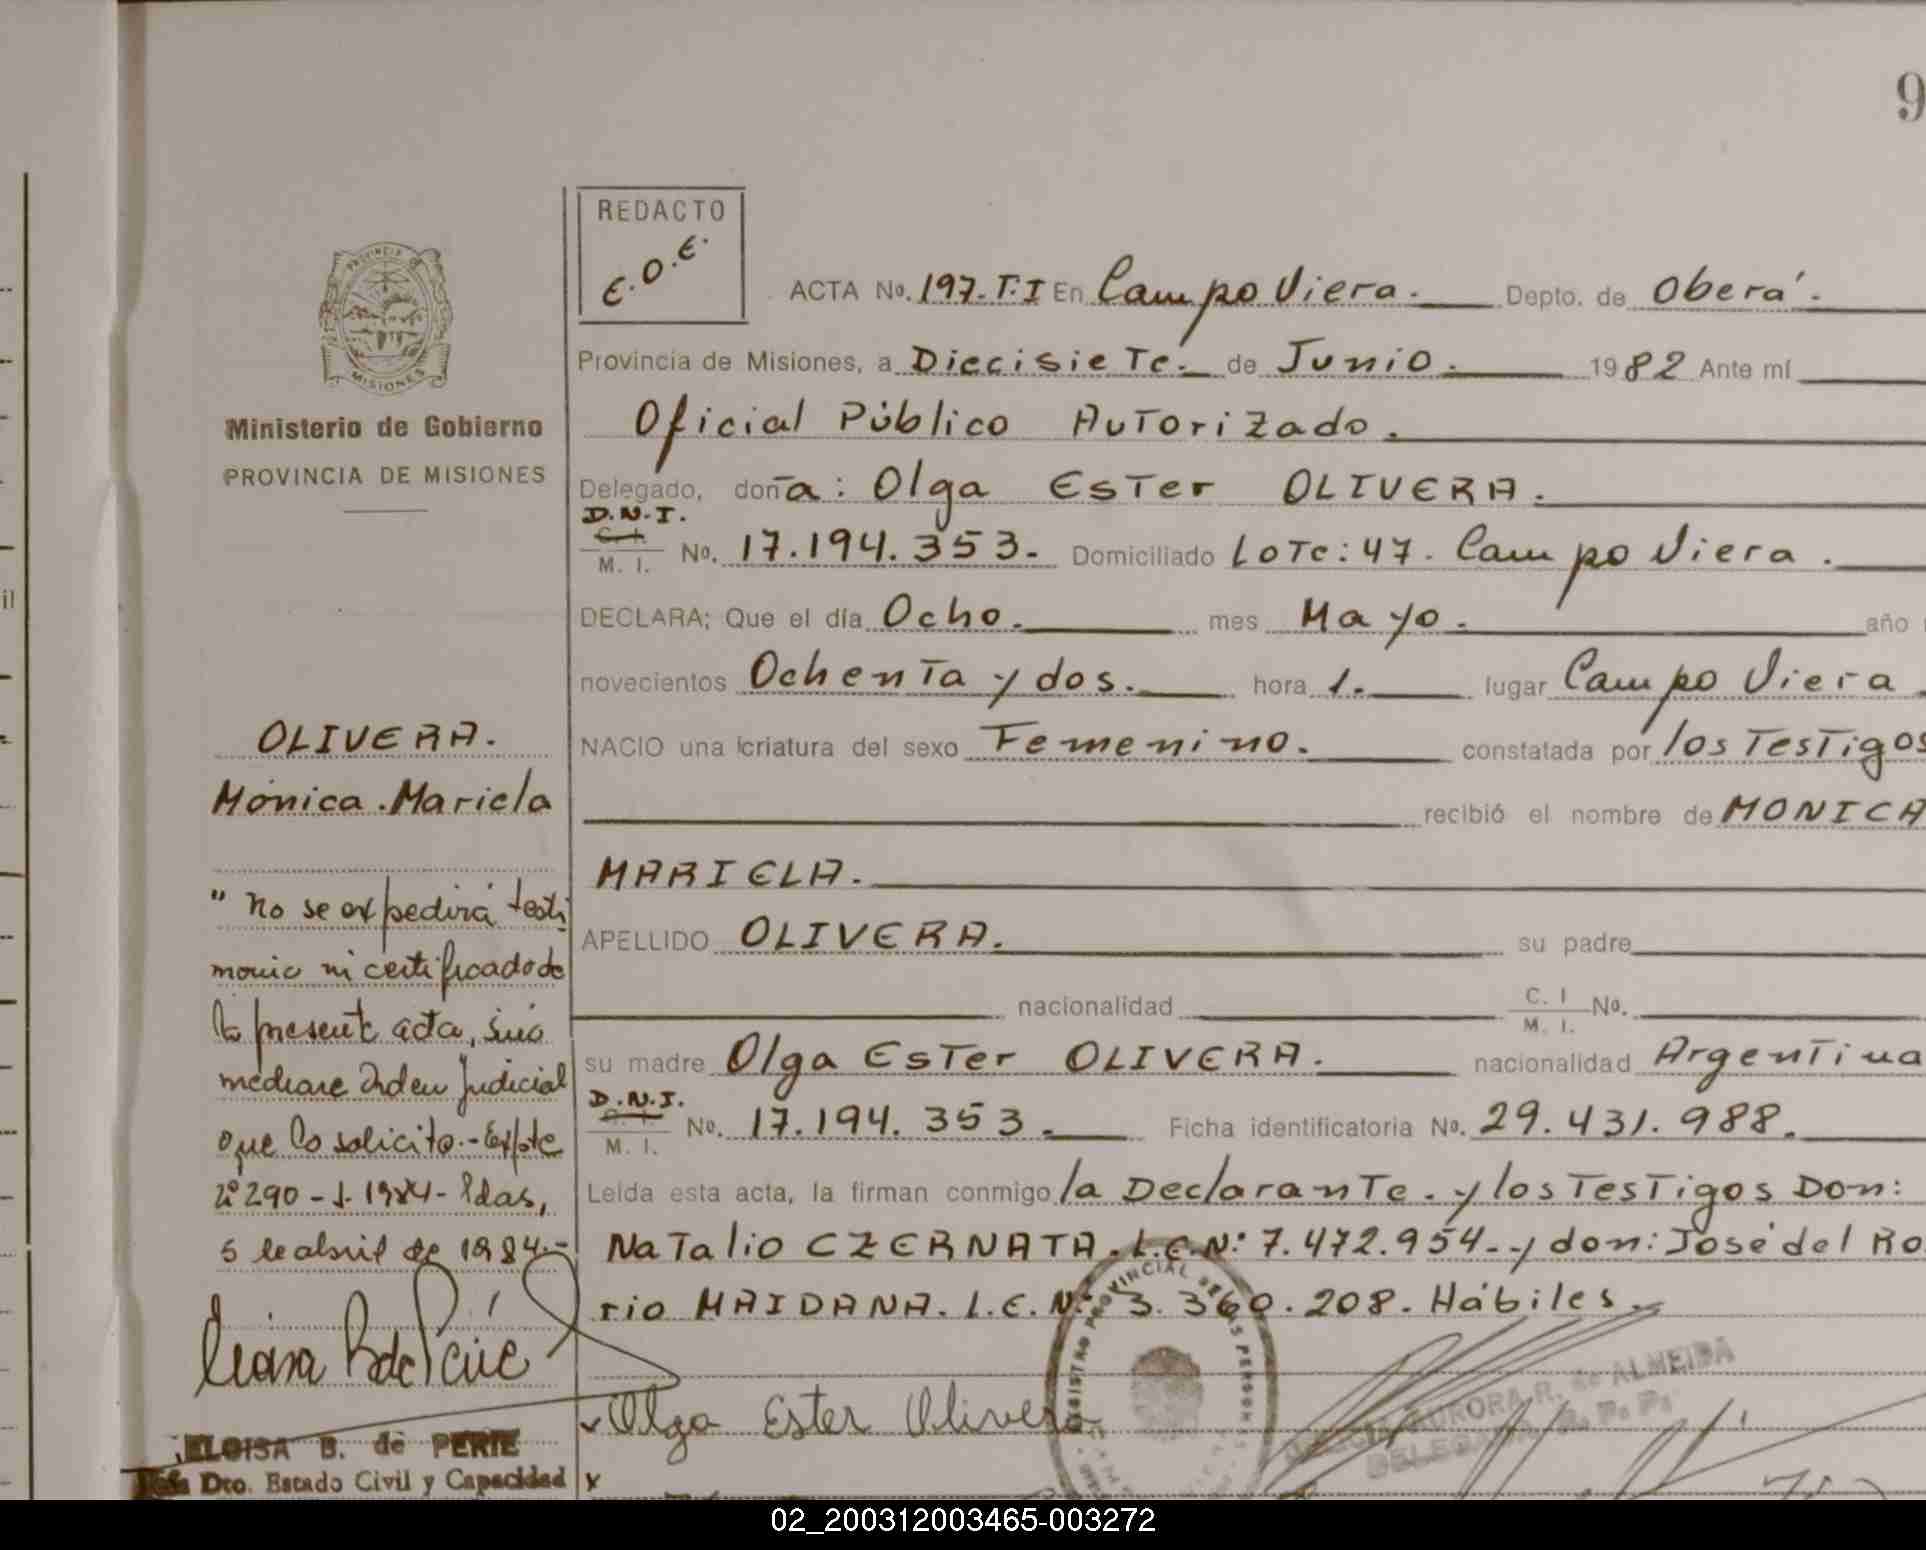 9
REDACTO
E.O.E.
PROVINCIA DE
MISIONES
Ministerio de Gobierno
PROVINCIA DE MISIONES
ACTA No. 197. T.I En Campo Viera. Depto. de Oberá.
Provincia de Misiones, a DiecisieTe. de Junio. 1982 Ante mí
Oficial Público AuTorizado.
Delegado, doña: Olga EsTer OLIVERA.
D.N.I.
C. I.
M. I. No. 17.194.353. Domiciliado LoTe: 47. Campo Viera.
DECLARA; Que el día Ocho. mes Mayo. año
novecientos OchenTa y dos. hora 1. lugar Campo Viera
NACIO una criatura del sexo Femenino. constatada por los TesTigos
recibió el nombre de MONICA
MARIELA.
APELLIDO OLIVERA. su padre
nacionalidad C. I M. I. No.
su madre Olga EsTer OLIVERA. nacionalidad ArgenTina
D.N.I.
M. I. No. 17.194.353. Ficha identificatoria No. 29.431.988.
Leída esta acta, la firman conmigo la DeclaranTe. y los TesTigos Don:
NaTalio CZERNATA. L.E.Nº: 7.472.954. y don: José del Ro
rio MAIDANA. L.E.Nº: 3.360.208. Hábiles.
Olga Ester Olivera
OLIVERA.
Mónica. Mariela
" No se expedirá testi
monio ni certificado de
la presente acta, sino
mediare Orden Judicial
que lo solicite.- Expte
nº 290 - J. 1984 - Pdas,
5 de abril de 1984.-
ELOISA B. de PERIE
Jefa Dto. Estado Civil y Capacidad
REGISTRO PROVINCIAL DE LAS PERSONAS
AURORA R. de ALMEIDA
DELEGADA R. P. P.
02_200312003465-003272